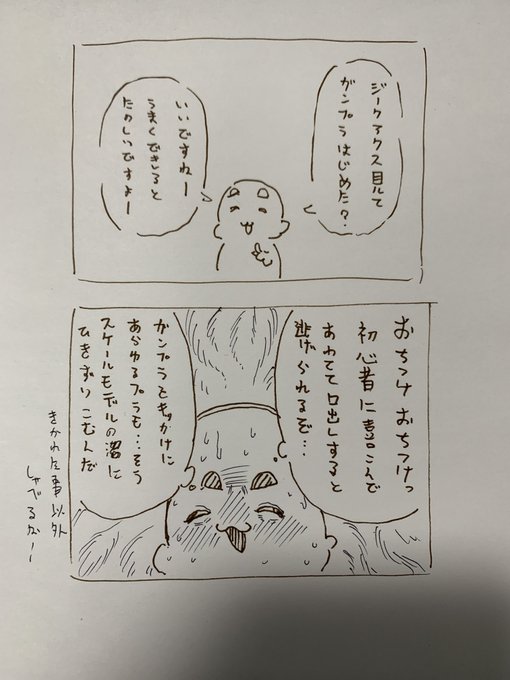 ジークアクス見て
ガンプラはじめた?
いいですねー
うまくできると
たのしいですよー
おちつけおちつけっ
初心者に喜こんで
あわてて口出しすると
逃げられるぞ…
ガンプラときっかけに
あらゆるプラも…そう
スケールモデルの沼に
ひきずりこむんだ
きかれた事以外
しゃべるなー